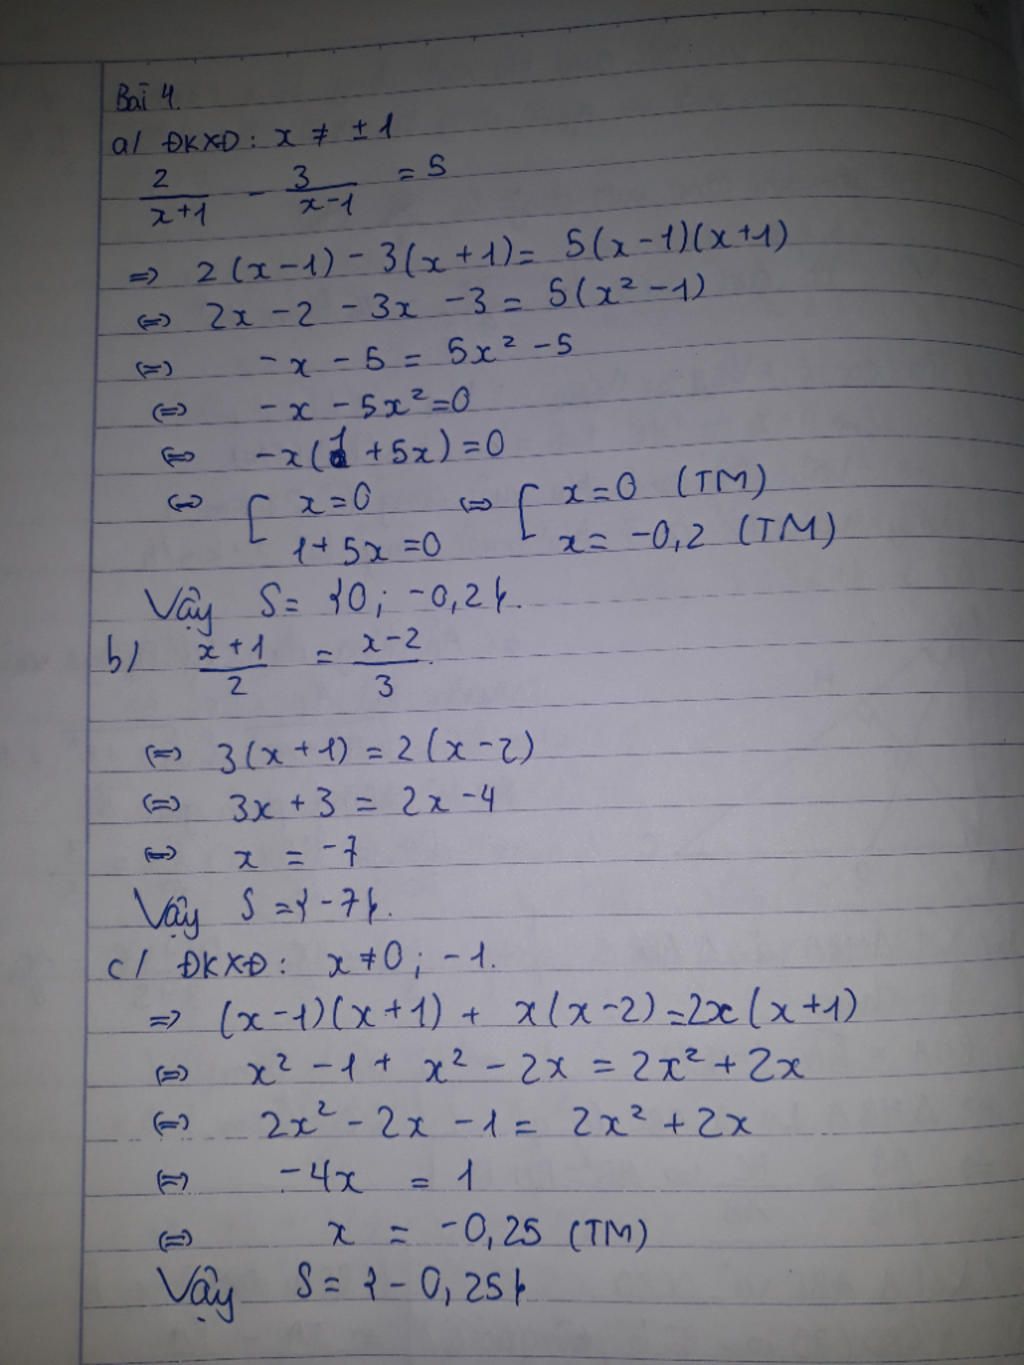 Bài 4.
a/ ĐKXĐ: x ≠ ±1
2/(x+1) - 3/(x-1) = 5
=> 2(x-1) - 3(x+1) = 5(x-1)(x+1)
<=> 2x - 2 - 3x - 3 = 5(x² - 1)
<=> -x - 5 = 5x² - 5
<=> -x - 5x² = 0
<=> -x(1 + 5x) = 0
<=> [ x = 0 <=> [ x = 0 (TM)
1 + 5x = 0 x = -0,2 (TM)
Vậy S = {0; -0,2}.
b/ (x+1)/2 = (x-2)/3.
<=> 3(x+1) = 2(x-2)
<=> 3x + 3 = 2x - 4
<=> x = -7
Vậy S = {-7}.
c/ ĐKXĐ: x ≠ 0; -1.
=> (x-1)(x+1) + x(x-2) = 2x(x+1)
<=> x² - 1 + x² - 2x = 2x² + 2x
<=> 2x² - 2x - 1 = 2x² + 2x
<=> -4x = 1
<=> x = -0,25 (TM)
Vậy S = {-0,25}